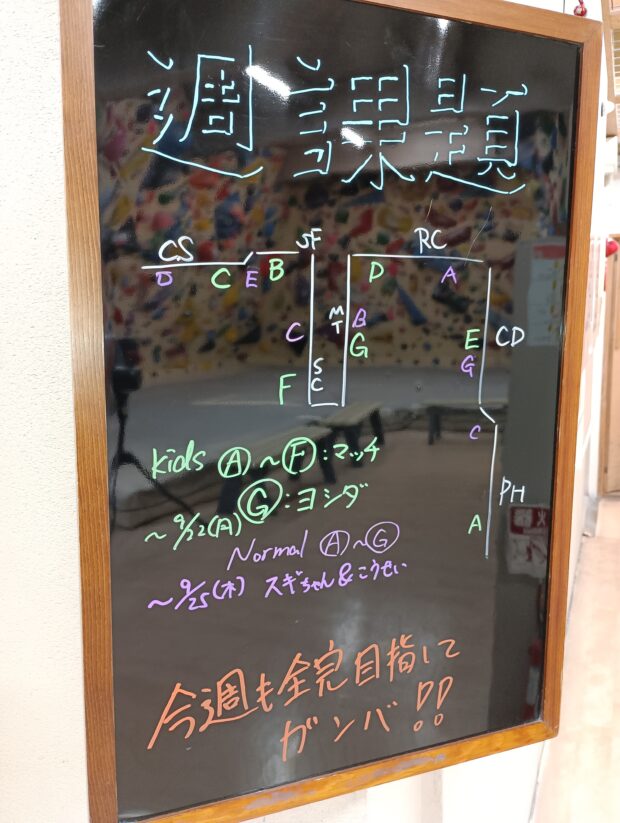 週課題
CS SF RC
D C E B D A
M
T
B
C G E CD
G
S
C
F C
PH
A
Kids Ⓐ~Ⓕ:マッチ
Ⓖ:ヨシダ
~9/22(月)
Normal Ⓐ~Ⓖ
~9/25(木) スギちゃん&こうせい
今週も全完目指して
ガンバ!!